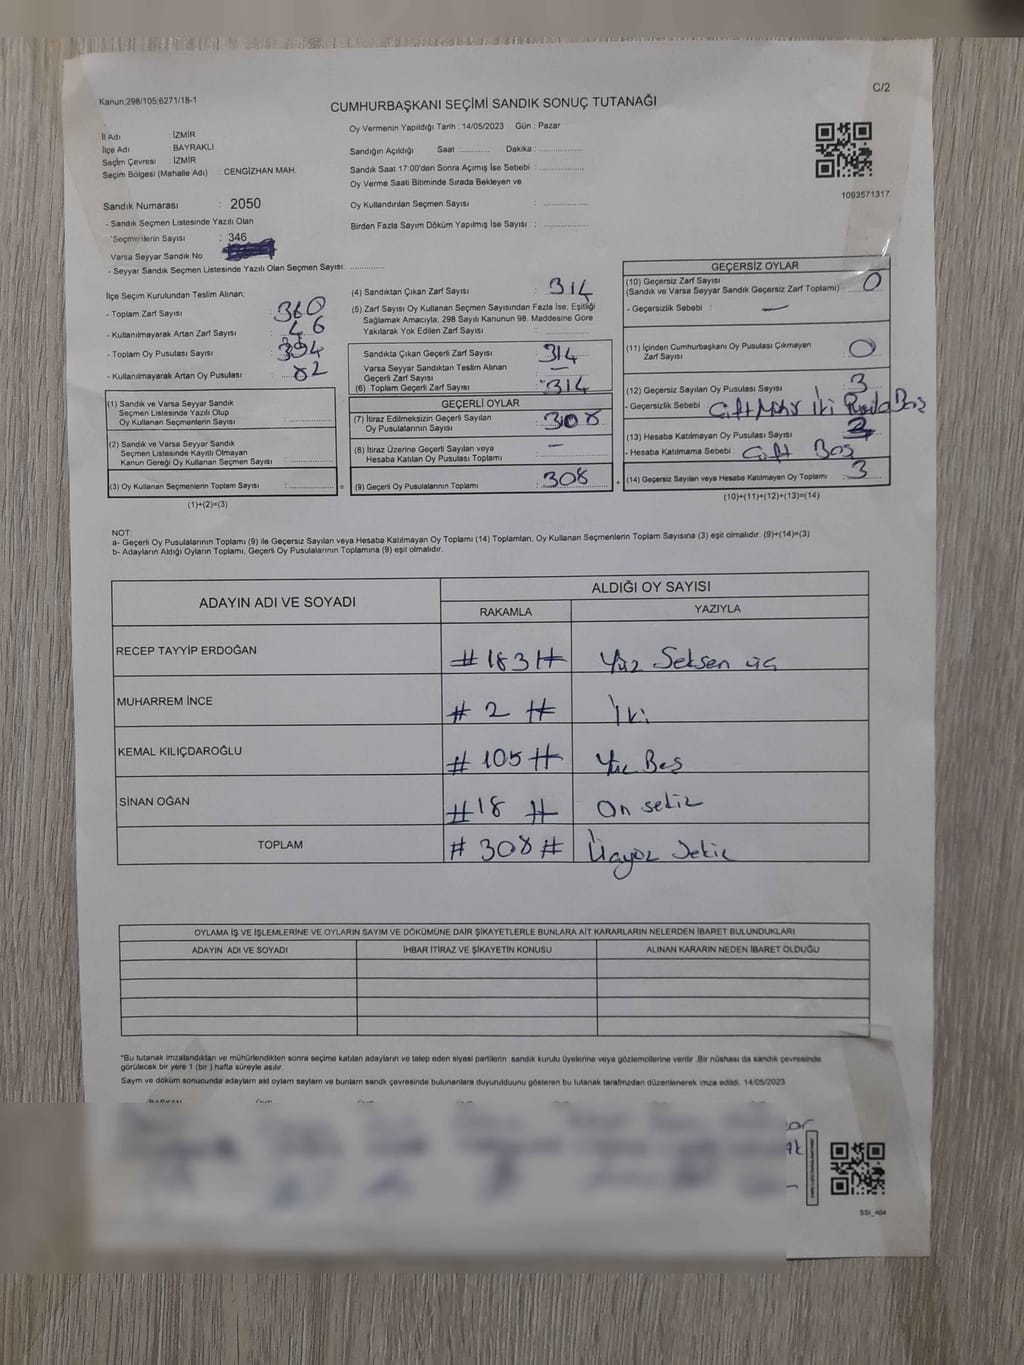 Kanun;298/105;6271/18-1
C/2
CUMHURBAŞKANI SEÇİMİ SANDIK SONUÇ TUTANAĞI
İl Adı İZMİR
İlçe Adı : BAYRAKLI
Seçim Çevresi : İZMİR
Seçim Bölgesi (Mahalle Adı) : CENGİZHAN MAH.
Sandık Numarası : 2050
- Sandık Seçmen Listesinde Yazılı Olan
Seçmenlerin Sayısı : 346
Varsa Seyyar Sandık No
- Seyyar Sandık Seçmen Listesinde Yazılı Olan Seçmen Sayısı: ..............
Oy Vermenin Yapıldığı Tarih : 14/05/2023 Gün : Pazar
Sandığın Açıldığı Saat :............ Dakika :..................
Sandık Saat 17:00'den Sonra Açımış İse Sebebi :..................
Oy Verme Saati Bitiminde Sırada Bekleyen ve
Oy Kullandırılan Seçmen Sayısı :..................
Birden Fazla Sayım Döküm Yapılmış İse Sayısı :..................
1093571317
İlçe Seçim Kurulundan Teslim Alınan;
- Toplam Zarf Sayısı : 360
- Kullanılmayarak Artan Zarf Sayısı : 46
- Toplam Oy Pusulası Sayısı : 394
- Kullanılmayarak Artan Oy Pusulası : 82
(1) Sandık ve Varsa Seyyar Sandık
Seçmen Listesinde Yazılı Olup
Oy Kullanan Seçmenlerin Sayısı :..............
(2) Sandık ve Varsa Seyyar Sandık
Seçmen Listesinde Kayıtlı Olmayan
Kanun Gereği Oy Kullanan Seçmen Sayısı :..............
(3) Oy Kullanan Seçmenlerin Toplam Sayısı :..............
(1)+(2)=(3)
(4) Sandıktan Çıkan Zarf Sayısı : 314
(5) Zarf Sayısı Oy Kullanan Seçmen Sayısından Fazla İse, Eşitliği
Sağlamak Amacıyla; 298 Sayılı Kanunun 98. Maddesine Göre
Yakılarak Yok Edilen Zarf Sayısı :..............
Sandıkta Çıkan Geçerli Zarf Sayısı : 314
Varsa Seyyar Sandıktan Teslim Alınan
Geçerli Zarf Sayısı : —
(6) Toplam Geçerli Zarf Sayısı : 314
GEÇERLİ OYLAR
(7) İtiraz Edilmeksizin Geçerli Sayılan
Oy Pusulalarının Sayısı : 308
(8) İtiraz Üzerine Geçerli Sayılan veya
Hesaba Katılan Oy Pusulası Toplamı : —
= (9) Geçerli Oy Pusulalarının Toplamı : 308
GEÇERSİZ OYLAR
(10) Geçersiz Zarf Sayısı
(Sandık ve Varsa Seyyar Sandık Geçersiz Zarf Toplamı) : 0
- Geçersizlik Sebebi : —
(11) İçinden Cumhurbaşkanı Oy Pusulası Çıkmayan
Zarf Sayısı : 0
(12) Geçersiz Sayılan Oy Pusulası Sayısı : 3
- Geçersizlik Sebebi : Çift Mühür İki Pusula Boş
(13) Hesaba Katılmayan Oy Pusulası Sayısı
- Hesaba Katılmama Sebebi : Çift Boş
+ (14) Geçersiz Sayılan veya Hesaba Katılmayan Oy Toplamı : 3
(10)+(11)+(12)+(13)=(14)
NOT:
a- Geçerli Oy Pusulalarının Toplamı (9) ile Geçersiz Sayılan veya Hesaba Katılmayan Oy Toplamı (14) Toplamları, Oy Kullanan Seçmenlerin Toplam Sayısına (3) eşit olmalıdır. (9)+(14)=(3)
b- Adayların Aldığı Oyların Toplamı, Geçerli Oy Pusulalarının Toplamına (9) eşit olmalıdır.
ADAYIN ADI VE SOYADI ALDIĞI OY SAYISI
RAKAMLA YAZIYLA
RECEP TAYYİP ERDOĞAN #183# Yüz Seksen üç
MUHARREM İNCE # 2 # İki
KEMAL KILIÇDAROĞLU # 105 # Yüz Beş
SİNAN OĞAN #18 # On sekiz
TOPLAM # 308 # Üçyüz Sekiz
OYLAMA İŞ VE İŞLEMLERİNE VE OYLARIN SAYIM VE DÖKÜMÜNE DAİR ŞİKAYETLERLE BUNLARA AİT KARARLARIN NELERDEN İBARET BULUNDUKLARI
ADAYIN ADI VE SOYADI İHBAR İTİRAZ VE ŞİKAYETİN KONUSU ALINAN KARARIN NEDEN İBARET OLDUĞU
*Bu tutanak imzalandıktan ve mühürlendikten sonra seçime katılan adayların ve talep eden siyasi partilerin sandık kurulu üyelerine veya gözlemcilerine verilir .Bir nüshası da sandık çevresinde
görülecek bir yere 1 (bir ) hafta süreyle asılır.
Sayım ve döküm sonucunda adayların ald oyların sayların ve bunların sandk çevresinde bulunanlara duyurulduunu gösteren bu tutanak tarafmzdan düzenlenerek imza edildi. 14/05/2023
BAŞKAN
SSI_404